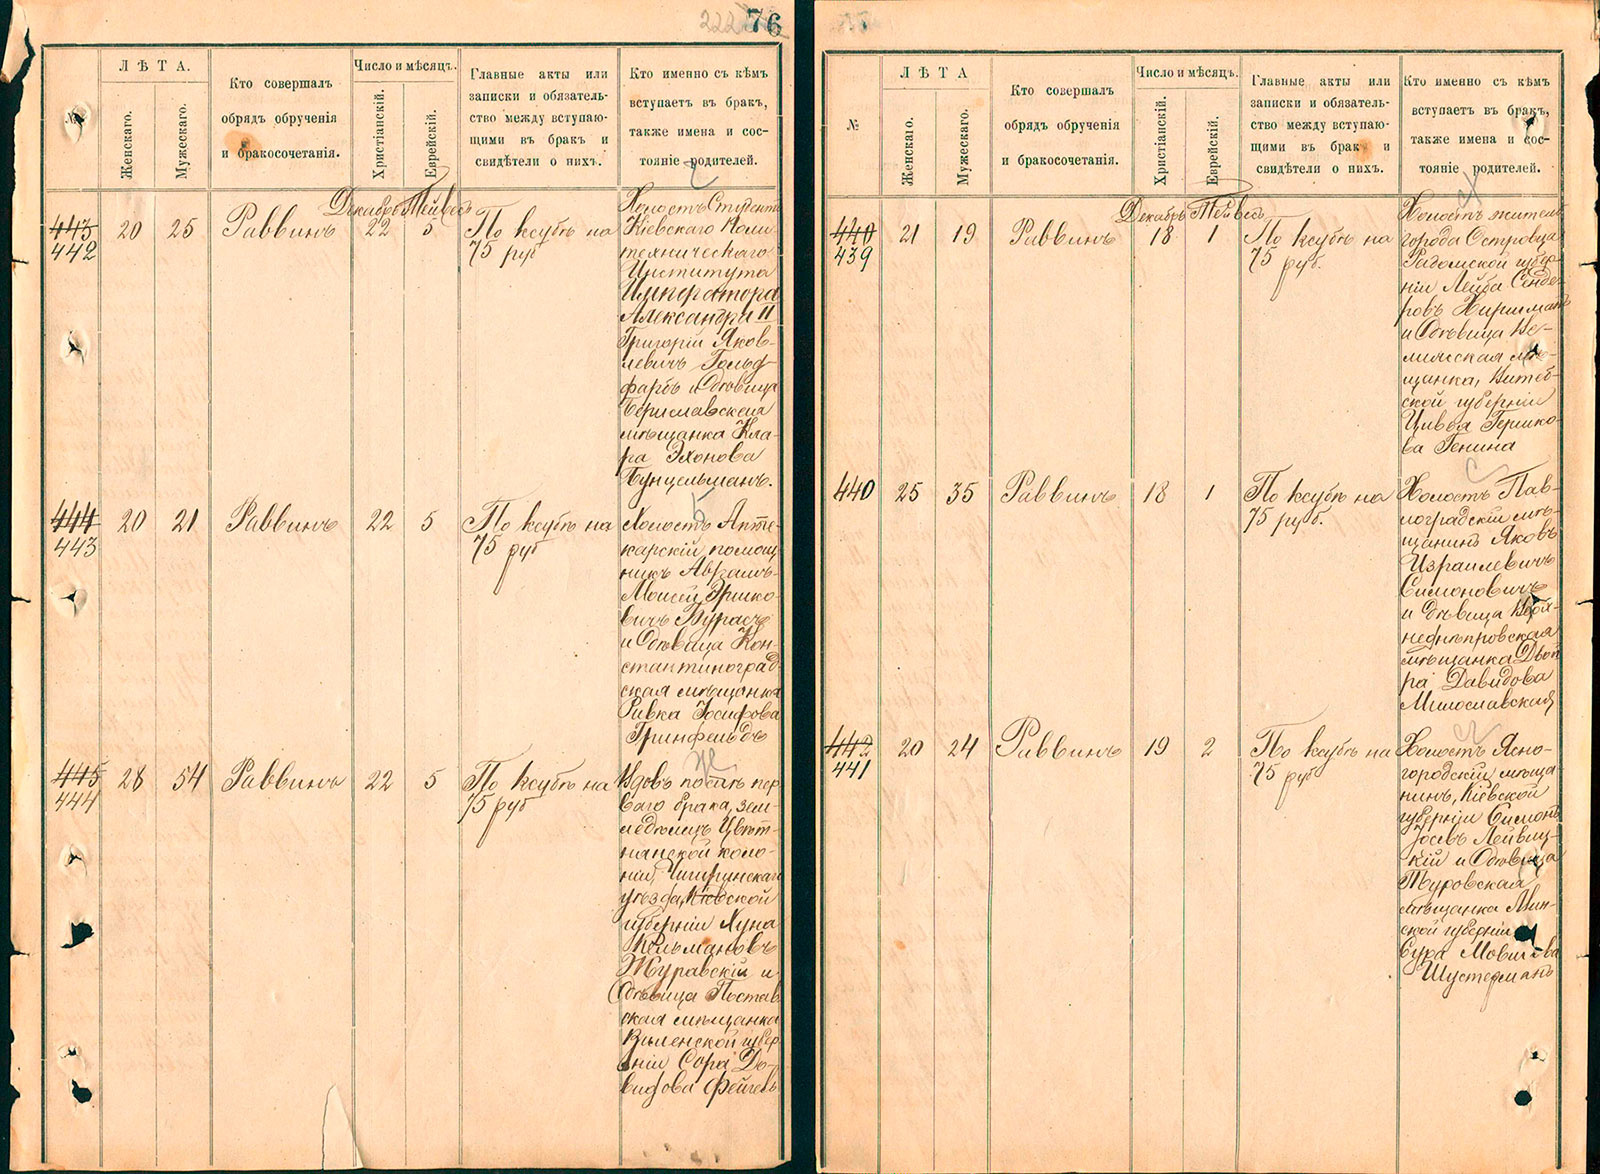 222
76
№
ЛѢТА.
Женскаго.
Мужескаго.
Кто совершалъ
обрядъ обрученія
и бракосочетанія.
Число и мѣсяцъ.
Христіанскій.
Еврейскій.
Главные акты или
записки и обязатель-
ство между вступаю-
щими въ бракъ и
свидѣтели о нихъ.
Кто именно съ кѣмъ
вступаетъ въ бракъ,
также имена и сос-
тояніе родителей.
Декабрь Тейвесъ
443
442
20 25 Раввинъ 22 5
По ксубѣ на
75 руб
Холостъ Студентъ
Кіевскаго Поли-
техническаго
Института
Императора
Александра II
Григорій Яков-
левичъ Гольд-
фарбъ и дѣвица
Бериславская
мѣщанка Кла-
ра Эхонова
Бунцельманъ.
444
443
20 21 Раввинъ 22 5
По ксубѣ на
75 руб
Холостъ Апте-
карскій помощ-
никъ Авраамъ-
Моисей
вичъ
и дѣвица Кон-
стантиноград-
ская мѣщанка
Ривка Іосифова
Гринфельдъ
445
444
28 54 Раввинъ 22 5
По ксубѣ на
75 руб
Вдовъ послѣ пер-
ваго брака, зем-
ледѣлецъ
колоніи
уѣзда, Кіевской
губерніи Хуна
Кельмановъ
Журавскій и
дѣвица Постав-
ская мѣщанка
Виленской губер-
ніи Сора До-
видова Фейгель
№
ЛѢТА
Женскаго.
Мужескаго.
Кто совершалъ
обрядъ обрученія
и бракосочетанія.
Число и мѣсяцъ.
Христіанскій.
Еврейскій.
Главные акты или
записки и обязатель-
ство между вступаю-
щими въ бракъ и
свидѣтели о нихъ.
Кто именно съ кѣмъ
вступаетъ въ бракъ,
также имена и сос-
тояніе родителей.
Декабрь Тейвесъ
440
439
21 19 Раввинъ 18 1
По ксубѣ на
75 руб.
Холостъ житель
города Островца
Радомской губер-
ніи Лейба Сенде-
ровъ
и дѣвица Ве-
лижская мѣ-
щанка, Витеб-
ской губерніи
Цивья Гершко-
ва Генина
440
25 35 Раввинъ 18 1
По ксубѣ на
75 руб.
Холостъ Пав-
лоградскій мѣ-
щанинъ Яковъ
Израилевичъ
Симоновичъ
и дѣвица Верх-
неднѣпровская
мѣщанка Двой
ра Давидова
Милославская
442
441
20 24 Раввинъ 19 2
По ксубѣ на
75 руб
Холостъ Ясно-
городскій мѣща-
нинъ, Кіевской
губерніи Симонъ
Іосевъ Лейвиц-
кій и дѣвица
Туровская
мѣщанка Мин-
ской губерніи
Сура Мовшева
Шустерманъ